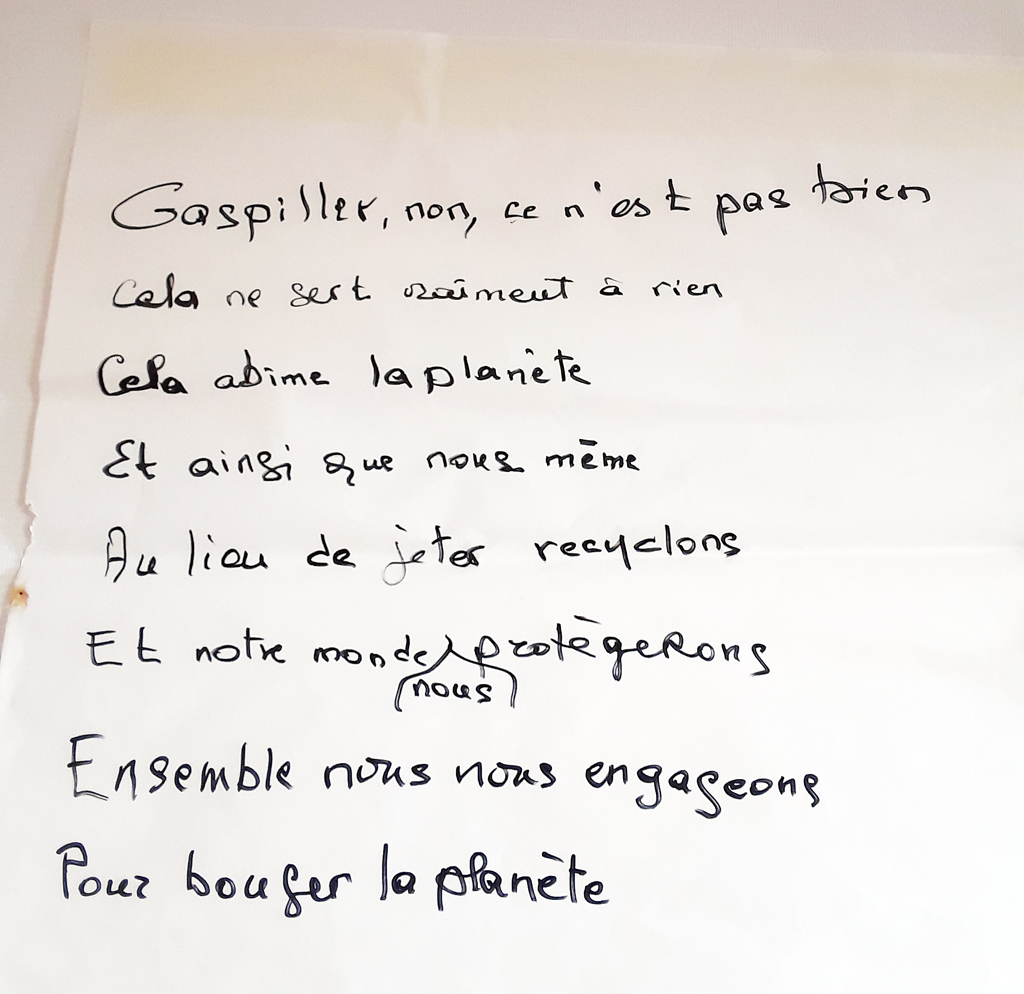 Gaspiller, non, ce n'est pas bien
Cela ne sert vraiment à rien
Cela abime la planète
Et ainsi que nous même
Au lieu de jeter recyclons
Et notre monde nous protègerons
Ensemble nous nous engageons
Pour bouger la planète